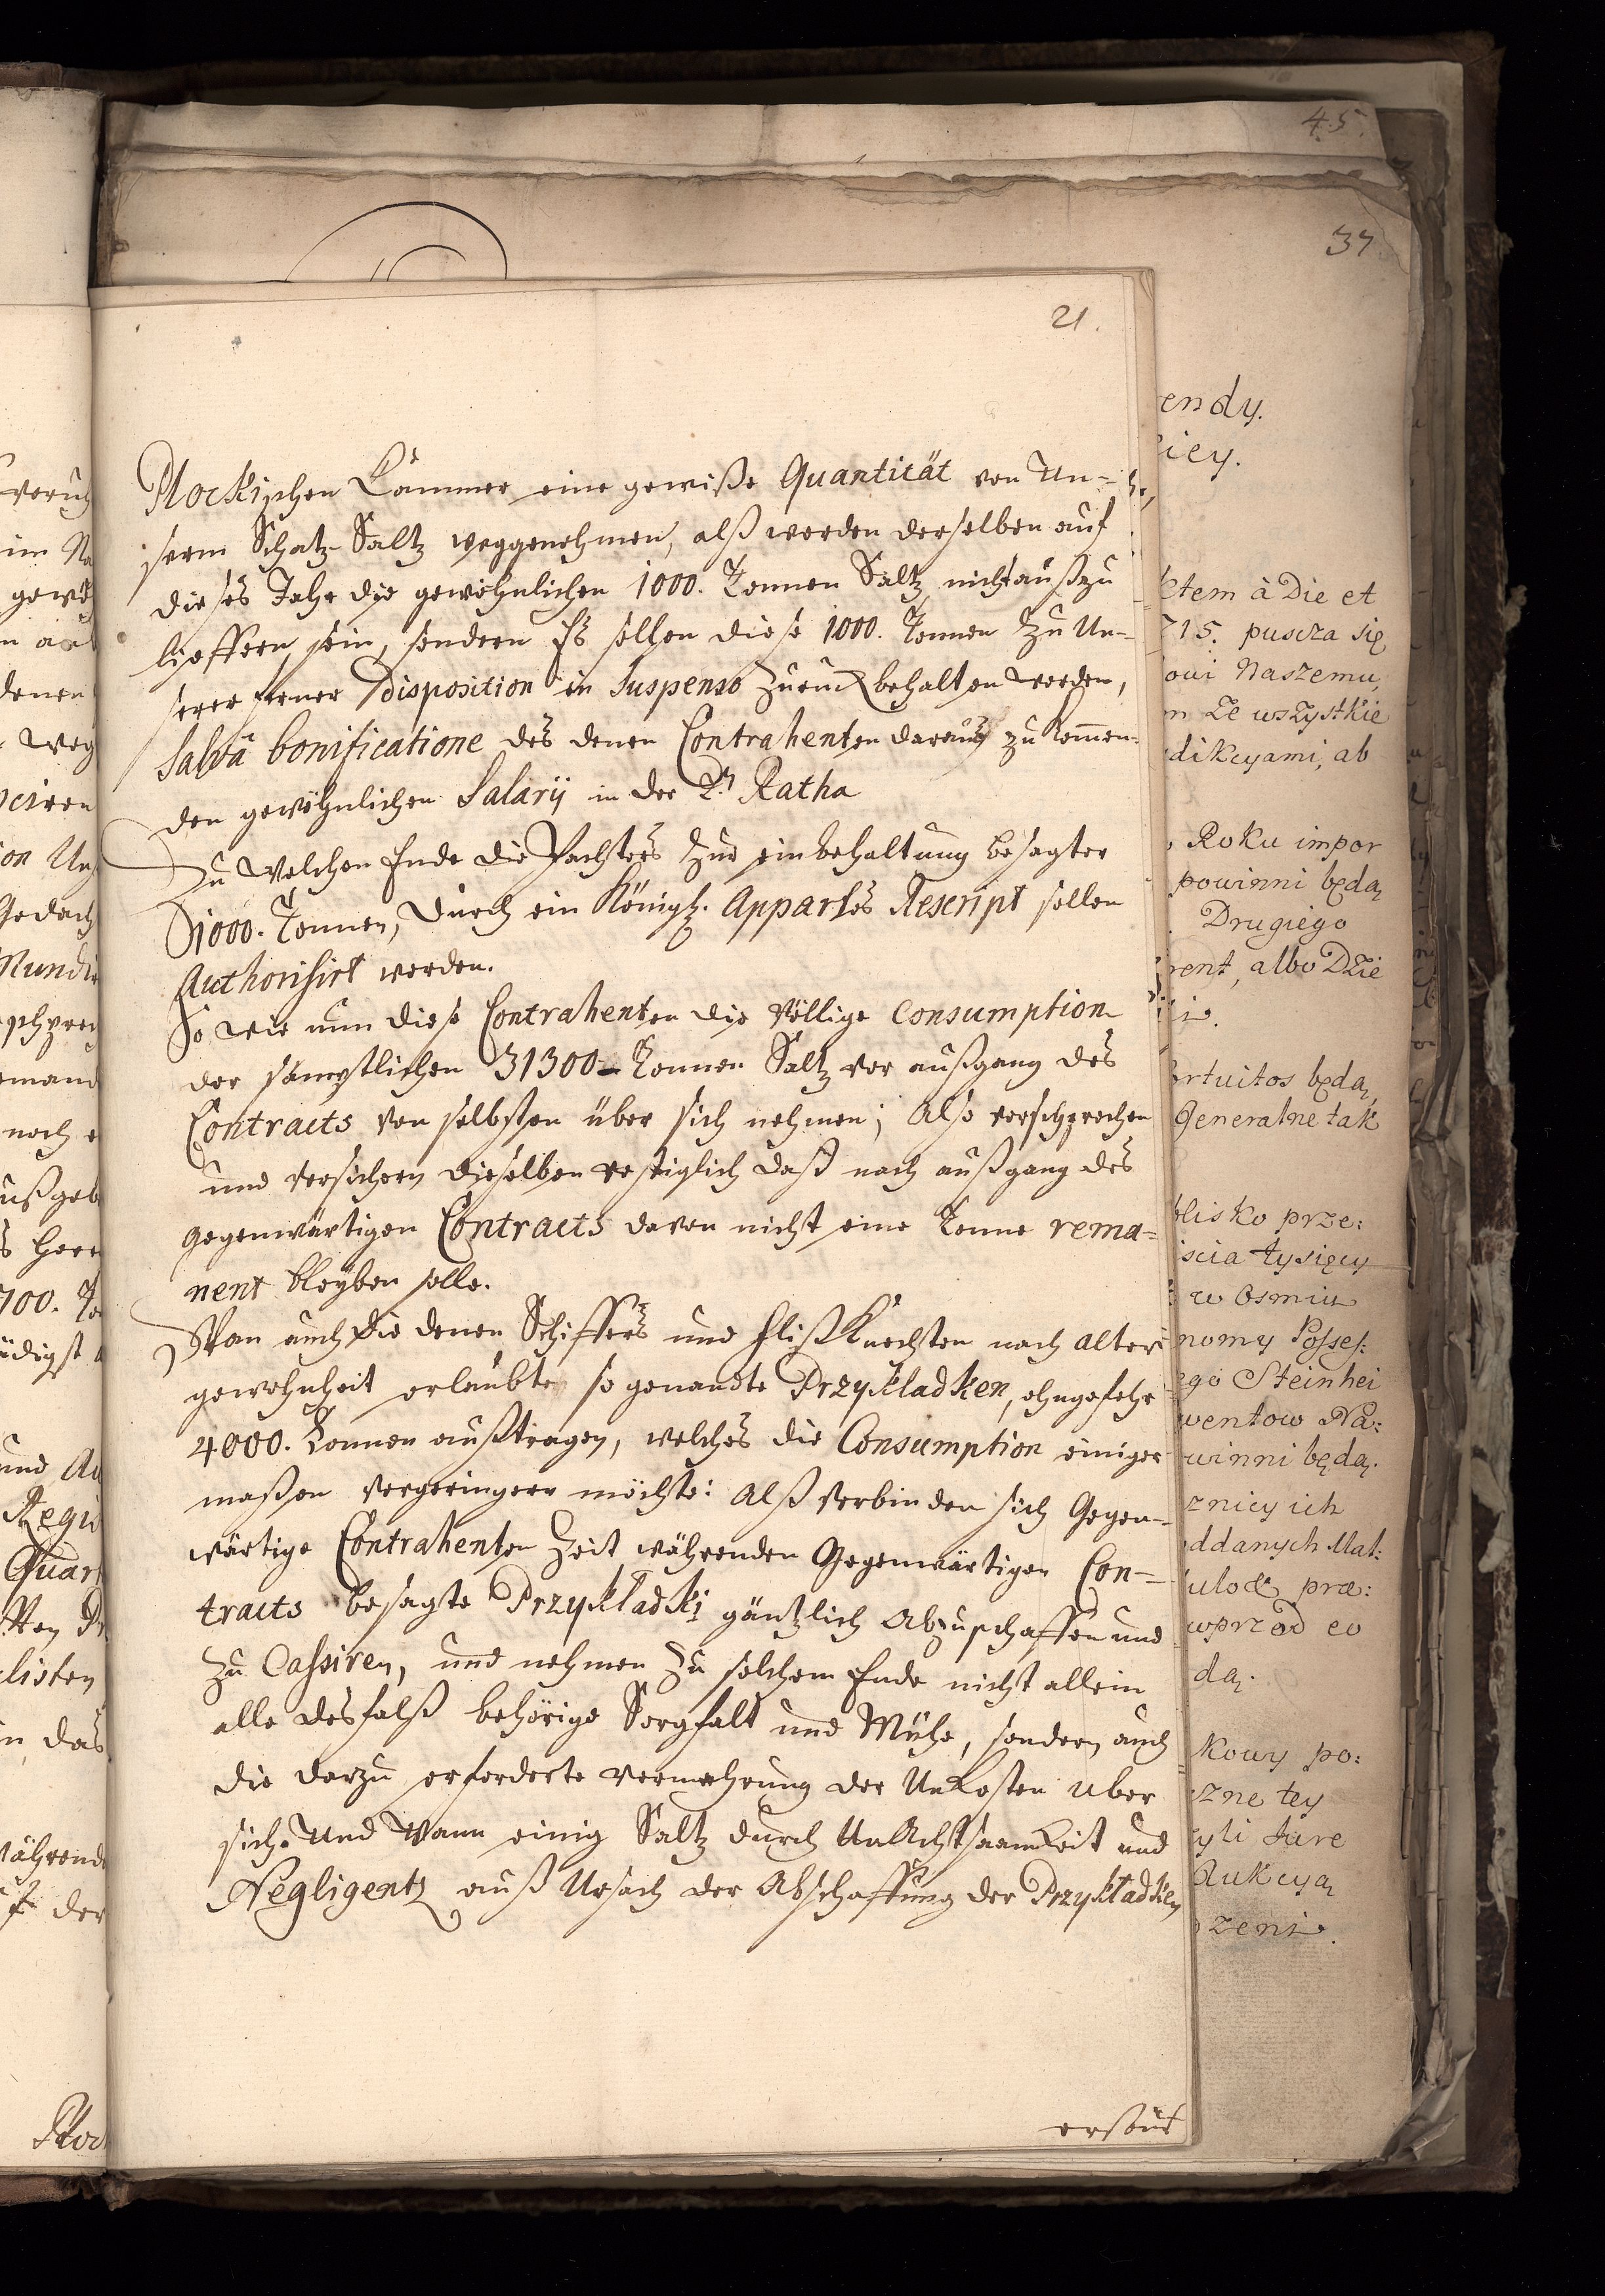 45.
37
21.
Plockischen Cammer eine gewiße Quantität von Un=
serm Schatz-Saltz weggenohmen, alß werden derselben auf
dieses Jahr die gewöhnlichen 1000. Tonnen Saltz nicht außzu
liefern sein, sondern Es sollen diese 1000. Tonnen zu Un=
serer ferner Disposition in Suspenso zurück behalten werden,
salvâ bonificatione des denen Contrahenten darauß zu kommen=
den gewöhnlichen Salarij in der Ratha
Zu welchen Ende die Pachters zur einbehaltung besagter
1000. Tonnen, durch ein Königl. Appartes Rescript sollen
Authorisirt werden.
So wie nun diese Contrahenten die völlige Consumption
der sämptlichen 31300 Tonnen Saltz vor außgang des
Contracts von selbsten über sich nehmen; Also versprechen
und versichern dieselben vestiglich daß nach außgang des
gegenwärtigen Contracts davon nicht eine Tonne rema=
nent bleyben solle.
Wan auch die denen Schiffers und flißKnechten nach alter
gewohnheit erlaubte so genandte Przykladken, ohngefehr
4000. Tonnen außtragen, welches die Consumption einiger
maßen vergeringern möchte: Alß verbinden sich Gegen=
wärtige Contrahenten Zeit währenden Gegenwärtigen Con=
tracts besagte Przykladki gäntzlich Abzuschaffen und
zu Cassiren, und nehmen zu solchem Ende nicht allein
alle desfalß behörige Sorgfalt und Mühe, sondern auch
die darzu erforderte vermehrung der UnKosten uber
sich. Und Wann einig Saltz durch UnAchtsaamkeit und
Negligentz auß Ursach der Abschaffung der Przykladken
endy.
iey.
tem à Die et
715. puszcza się
owi Naszemu,
m Ze wszystkie
dikcyami, ab
Roku impor
powinni będą
Drugiego
rent, albo Dzie
rtuitos będą
Generalne tak
blisko prze:
iscia tysięcy
w Osmiu
nomy Posses:
ego Steinhei
wentow Na:
winni będą.
znicy ich
ddanych Mat:
præ:
wprzod eo
dą.
kowy po:
szne tey
yli Jure
dukcyą
zeni.